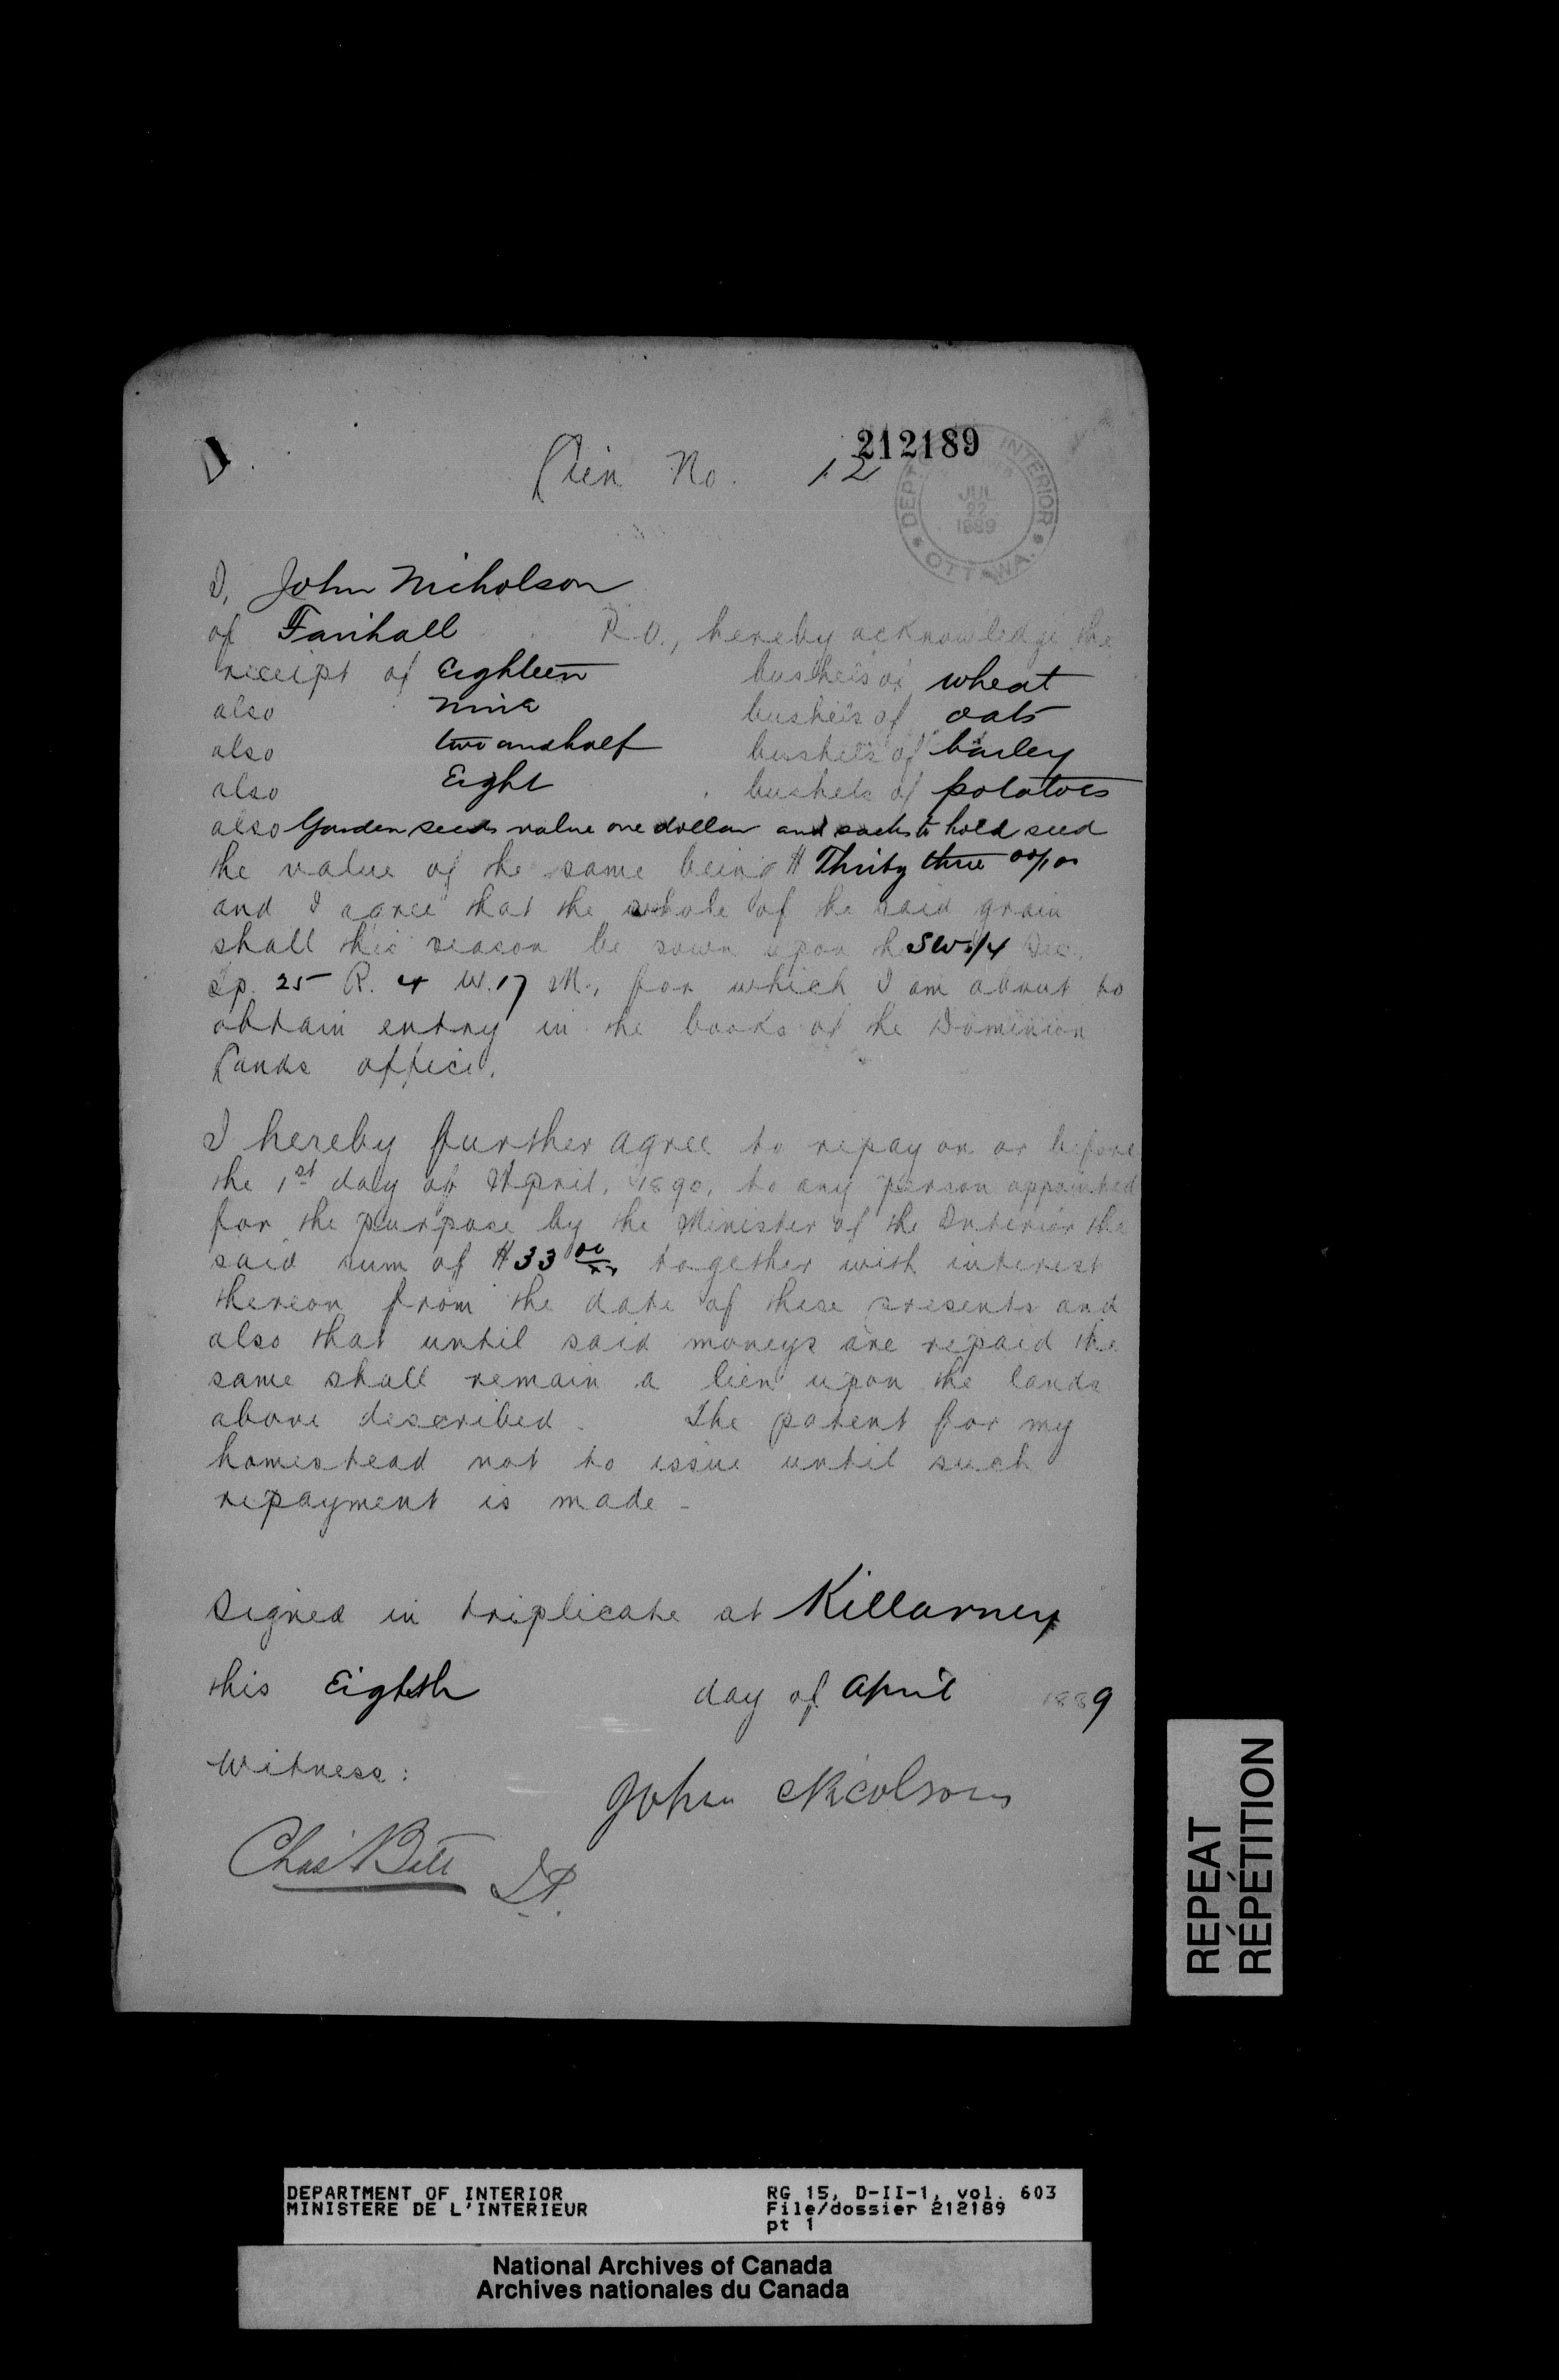 212189
Lien No. 12
DEPT. OF INTERIOR
JUL
22
1889
OTTAWA.
I, John Nicholson
of Fairhall P.O., hereby acknowledge the
receipt of Eighteen bushels of wheat
also nine bushels of oats
also two and half bushels of barley
also Eight bushels of potatoes
also Garden seeds value one dollar and sacks to hold seed
the value of the same being $ Thirty three 00/00
and I agree that the whole of the said grain
shall this season be sown upon the SW 1/4 Sec.
Tp. 25 R. 4 W. M., for which I am about to
obtain entry in the books of the Dominion
Lands office.
I hereby further agree to repay on or before
the 1st day of April, 1890, to any person appointed
for the purpose by the Minister of the Interior the
said sum of $33 00/xx together with interest
thereon from the date of these presents and
also that until said moneys are repaid the
same shall remain a lien upon the lands
above described. The patent for my
homestead not to issue until such
repayment is made -
Signed in triplicate at Killarney
this Eighth day of April 1889
Witness:
John Nicolson
Chas
REPEAT
RÉPÉTITION
DEPARTMENT OF INTERIOR RG 15, D-II-1, vol. 603
MINISTERE DE L'INTERIEUR File/dossier 212189
pt 1
National Archives of Canada
Archives nationales du Canada